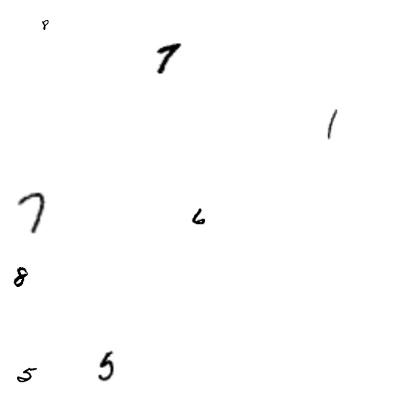 8
7
1
7
6
8
5 5